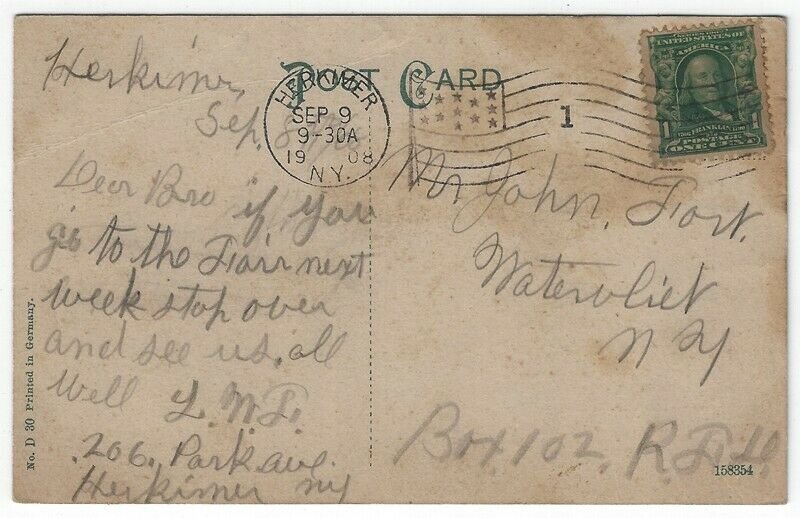 POST CARD
Herkimer,
Sep. 8
HERKIMER
SEP 9
9-30A
19 08
N.Y.
1
SERIES 1902
UNITED STATES OF
AMERICA
FRANKLIN
1 POSTAGE 1
ONE CENT
Dear Bro if you
go to the Fair next
week stop over
and see us. all
Well L. M. F.
206. Park ave.
Herkimer NY
Mr John. Fort.
Watervliet
N Y
Box 102. R.F.D.
No. D 30 Printed in Germany.
158354